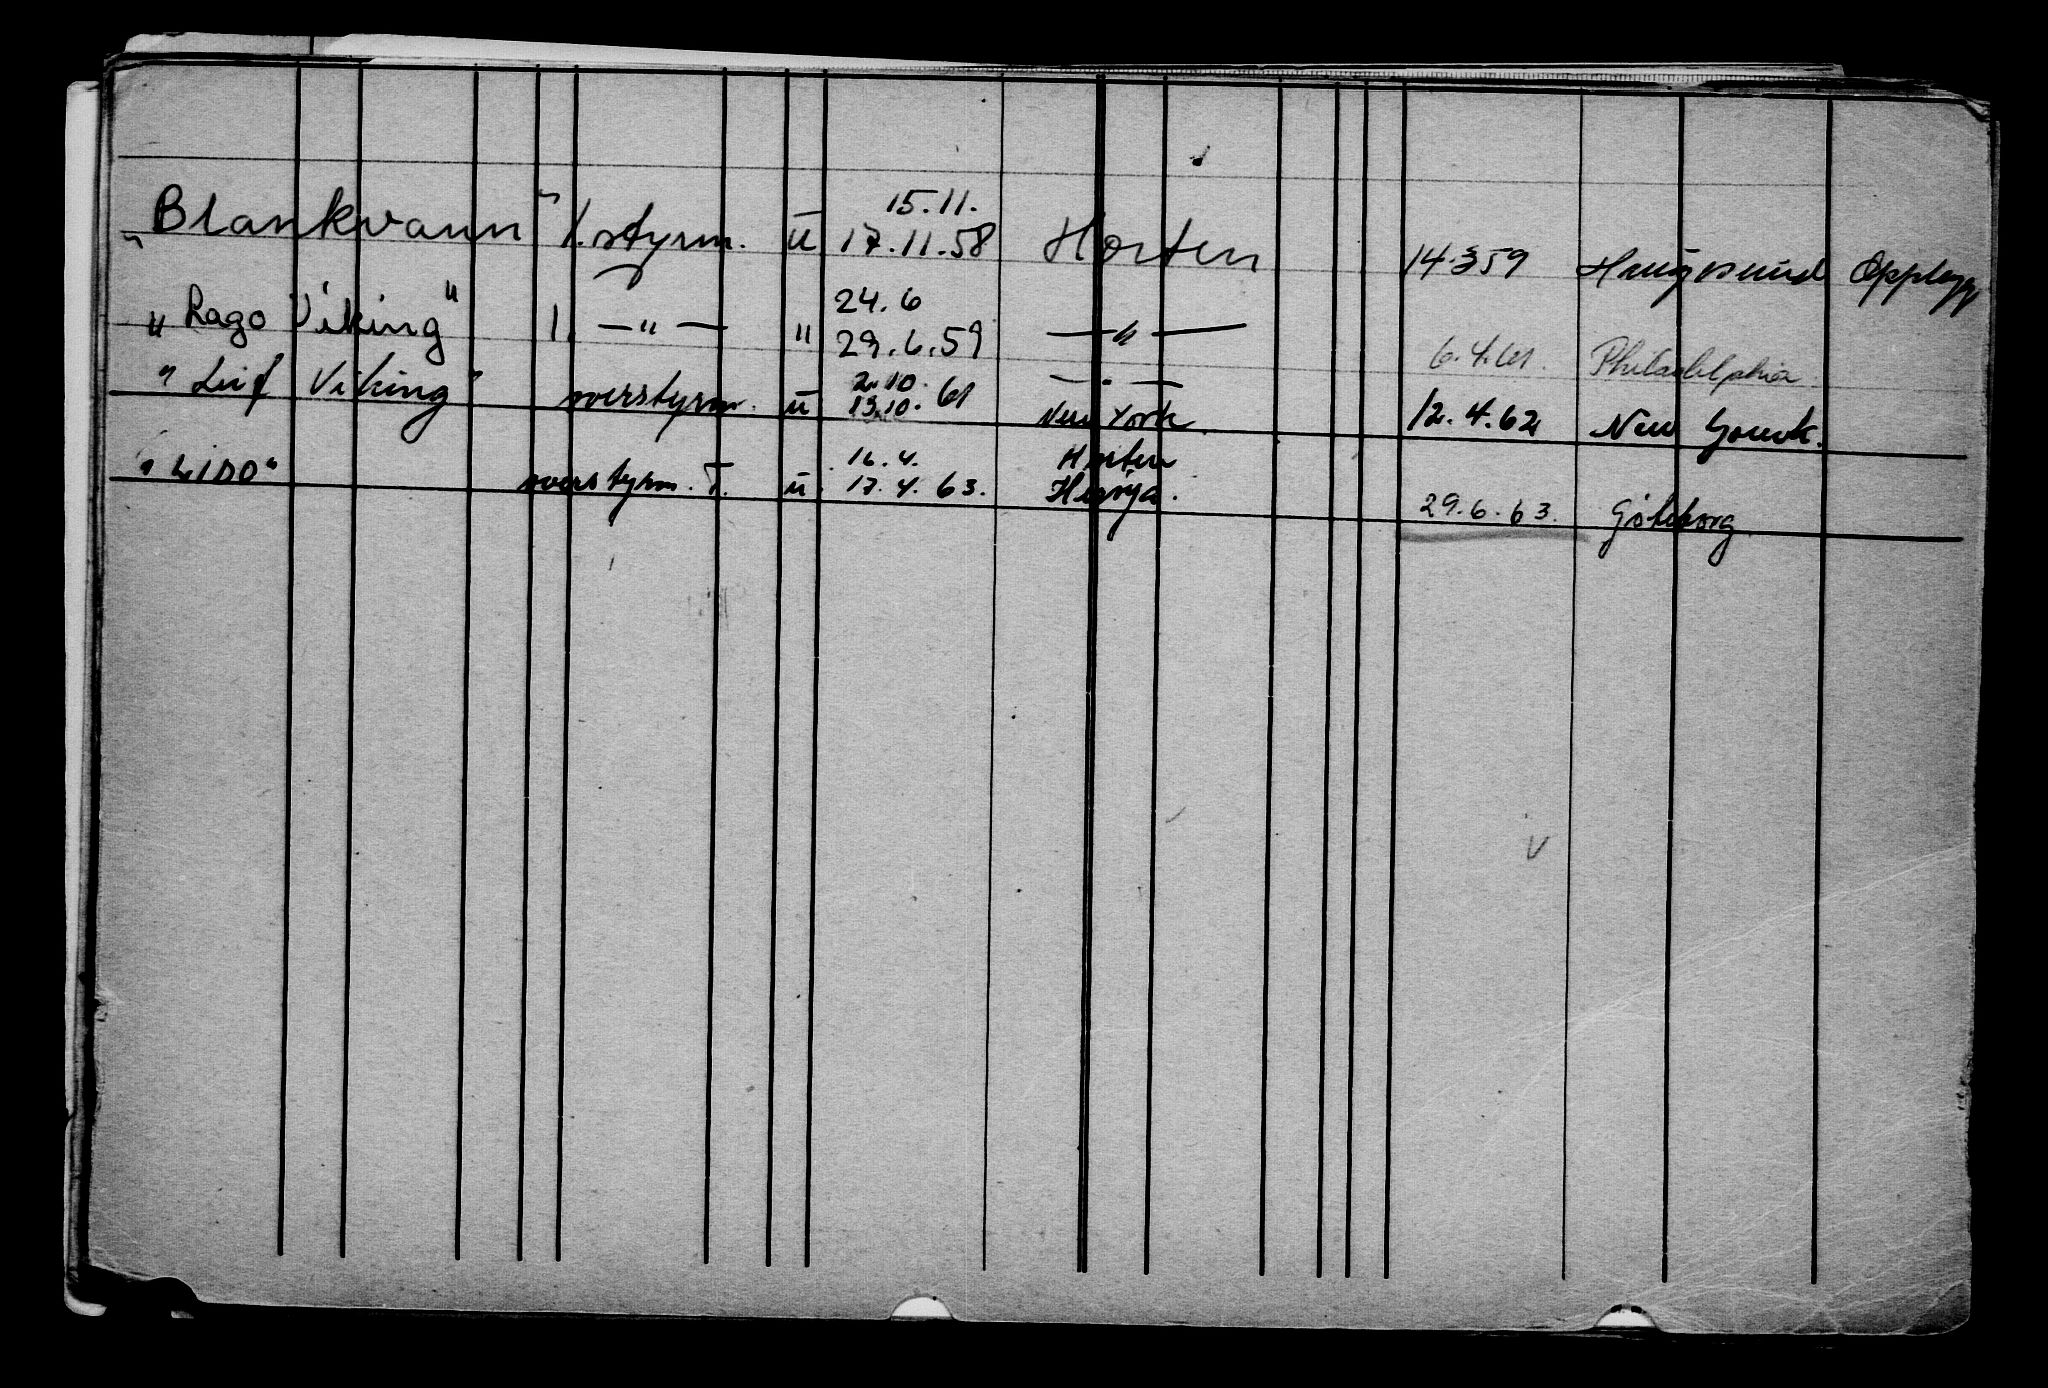 15.11.
"Blankvann" 1. styrm. u 17.11.58 Horten 14.3.59 Haugesund Opplegg
24.6
"Rago Viking" 1. —"— " 29.6.59 —"— 6.4.61. Philadelphia
2.10.
"Leif Viking" overstyrm. u 13.10. 61 —"— New York 12.4.62 New Yourk.
16.4. Horten
"LIDO" overstyrm. T. u 17.4.63. Herøya. 29.6.63. Göteborg